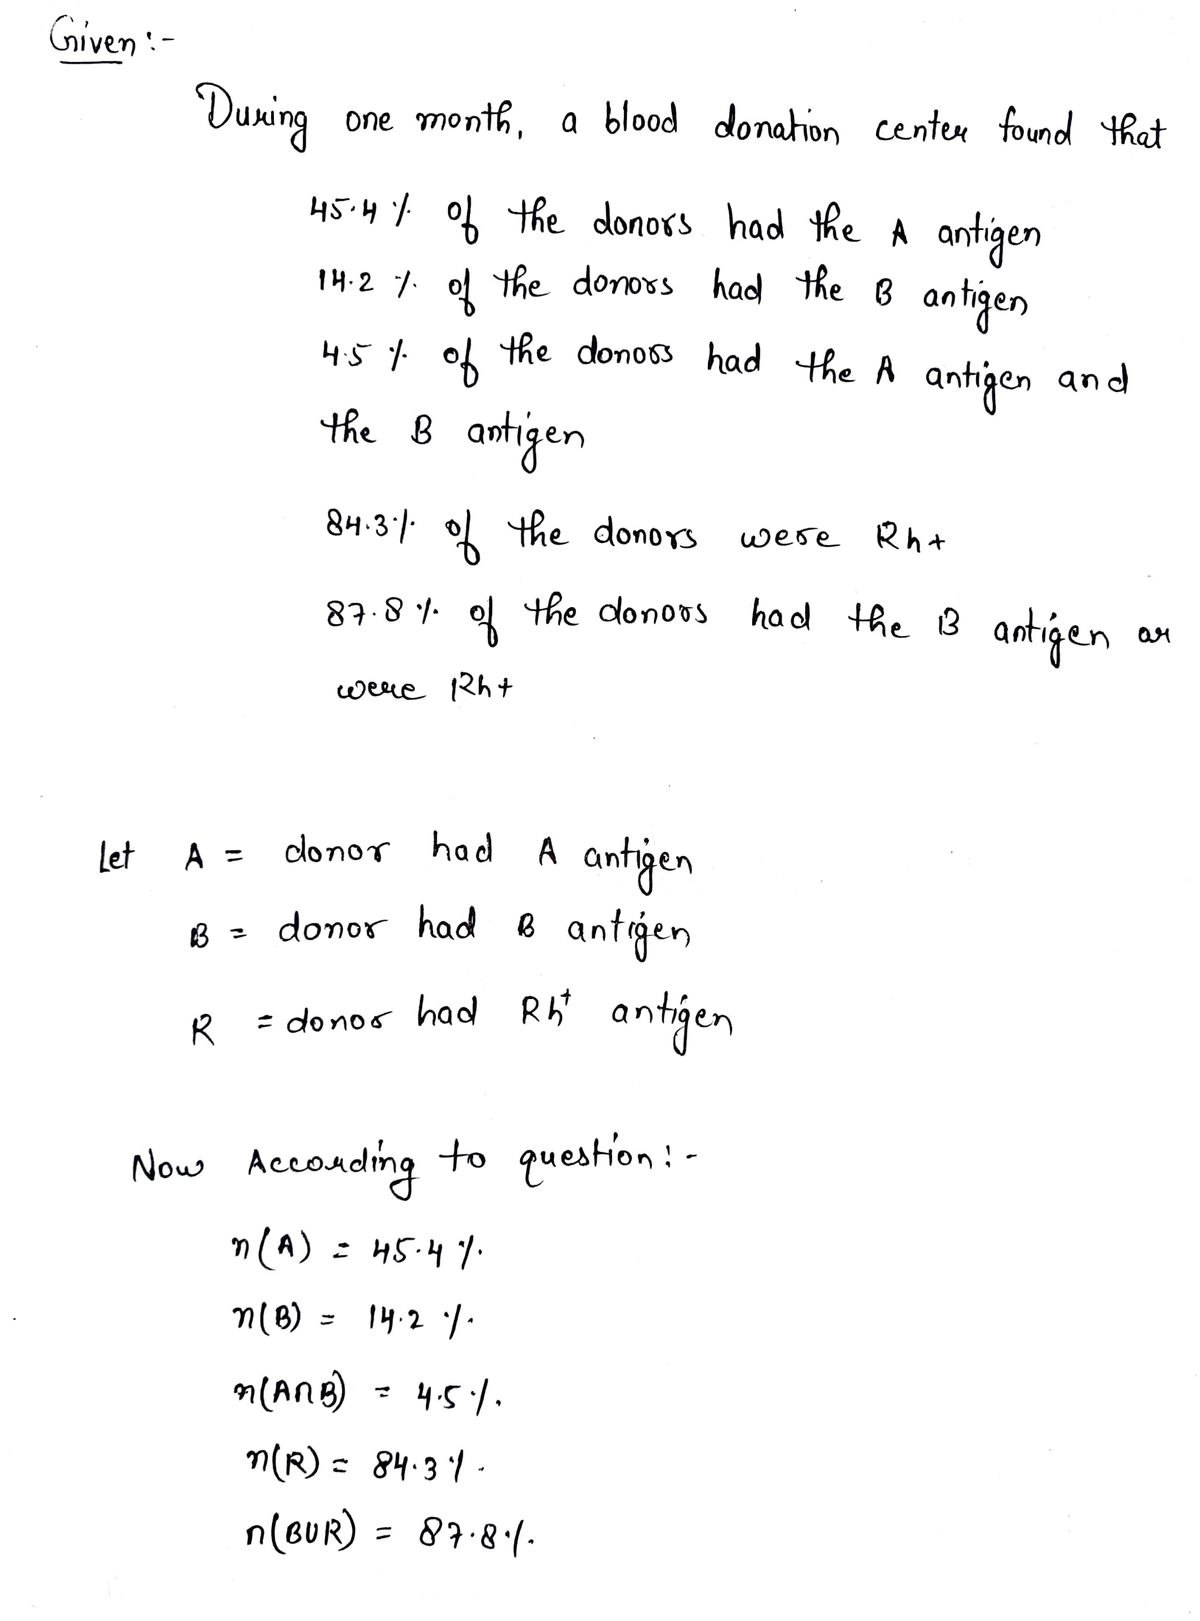 Given :-
During one month, a blood donation center found that
45.4 % of the donors had the A antigen
14.2 % of the donors had the B antigen
4.5 % of the donors had the A antigen and
the B antigen
84.3% of the donors were Rh+
87.8 % of the donors had the B antigen or
were Rh+
Let A = donor had A antigen
B = donor had B antigen
R = donor had Rh⁺ antigen
Now According to question :-
n(A) = 45.4 %.
n(B) = 14.2 %.
n(A∩B) = 4.5 %.
n(R) = 84.3 %.
n(BUR) = 87.8 %.